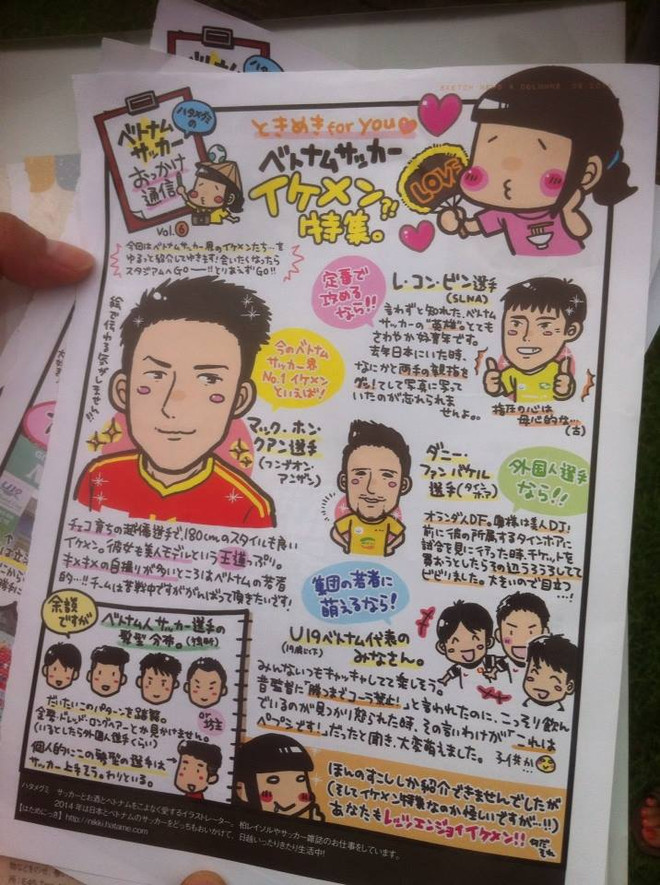 ハタメグミの
ベトナム
サッカー
おっかけ
通信!
Vol.6
ときめき for you
ベトナムサッカー
イケメン?!
特集。
LOVE
今回はベトナムサッカー界のイケメンたち…を
ゆるっと紹介してゆきます!会いたくなったら
スタジアムへGO——!!とりあえずGO!!
絵で伝わる気がしません!!
今のベトナム
サッカー界
No.1イケメン
といえば!
マック・ホン・
クアン選手
(フンブオン・
アンザン)
チェコ育ちの越僑選手で、180cmのスタイルも良い
イケメン。彼女も美人モデルという王道っぷり。
キメキメの自撮りが多いところはベトナムの若者
的…!!チームは苦戦中ですががんばって頂きたいです!
定番で
攻める
なら!!
レ・コン・ビン選手
(SLNA)
言わずと知れた、ベトナム
サッカーの"英雄"。とても
さわやか好青年です。
去年日本にいた時、
なにかと両手の親指を
グ!てして写真に写って
いたのが忘れられま
せんよ。。
指圧の心は
母心的な…
(古)
外国人選手
なら!!
ダニー・
ファンバケル
選手(タインホア)
オランダ人DF。奥様は美人DJ!
前に彼の所属するタインホアに
試合を見に行った時、チケットを
買おうとしたらその辺うろうろしてて
ビビりました。大きいので目立つ
…!
集団の若者に
萌えるなら!
U19ベトナム代表の
(19歳以下)
みなさん。
みんないつもキャッキャしてて楽しそう。
昔監督に「勝つまでコーラ禁止!」と言われたのに、こっそり飲ん
でいるのが見つかり怒られた時、その言いわけが「これは
ペプシです!」だったと聞き、大変萌えました。子供か
余談
ですが
ベトナム人サッカー選手の
髪型分布。
or
坊主
だいたいこの4パターンを踏襲。
金髪・ドレッド・ロングヘアーとか見かけません。
(いるとしたら外国人選手くらい)
個人的にこの髪型の選手は
サッカー上手そう。わりといる。
ほんのすこししか紹介できませんでしたが
(そしてイケメン特集なのか怪しいですが…!!)
あなたもレッツエンジョイイケメン!!
ハタメグミ サッカーとお酒とベトナムをこよなく愛するイラストレーター。柏レイソルやサッカー雑誌のお仕事をしています。
2014年は日本とベトナムのサッカーをどっちもおいかけて、日越いったりきたり生活中!!
【はためにっき】http://nikki.hatame.com